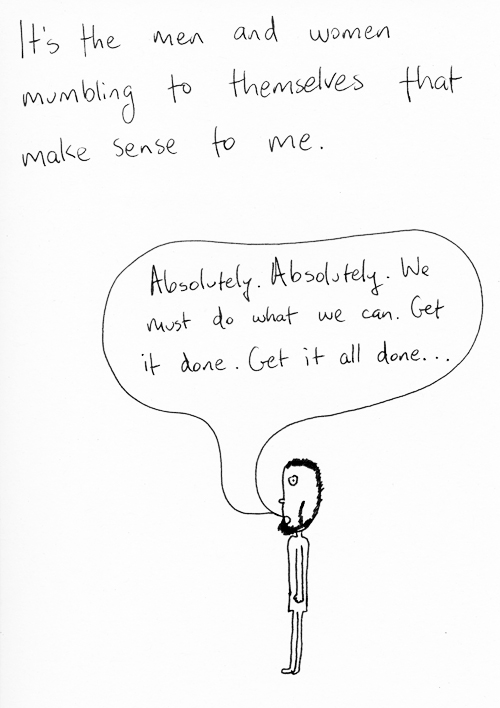 It's the men and women
mumbling to themselves that
make sense to me.
Absolutely. Absolutely. We
must do what we can. Get
it done. Get it all done...